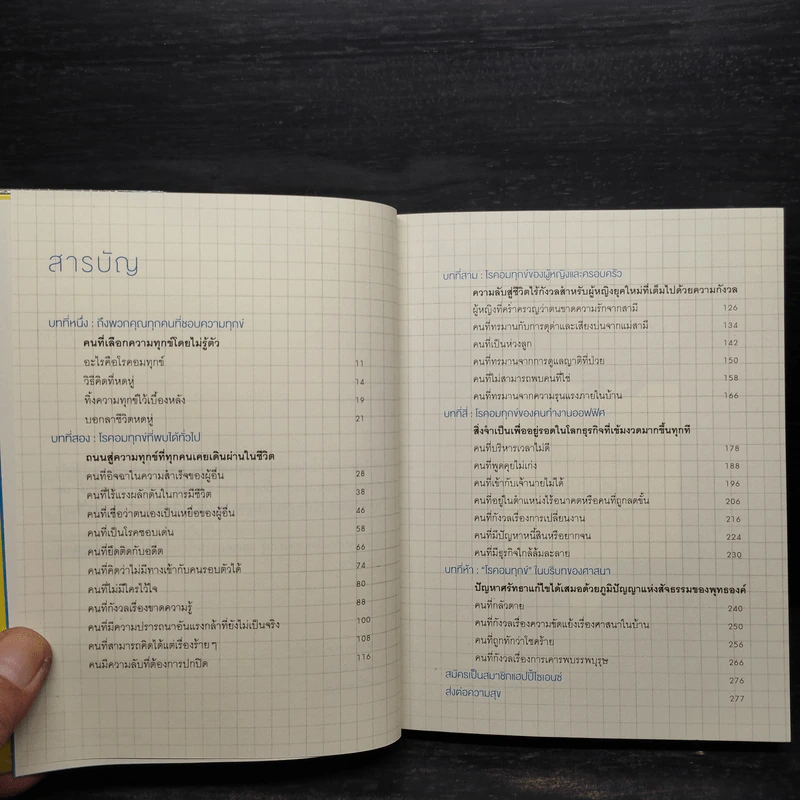 สารบัญ
บทที่หนึ่ง : ถึงพวกคุณทุกคนที่ชอบความทุกข์
คนที่เลือกความทุกข์โดยไม่รู้ตัว
อะไรคือโรคอมทุกข์ 11
วิธีคิดที่หดหู่ 14
ทิ้งความทุกข์ไว้เบื้องหลัง 19
บอกลาชีวิตหดหู่ 21
บทที่สอง : โรคอมทุกข์ที่พบได้ทั่วไป
ถนนสู่ความทุกข์ที่ทุกคนเคยเดินผ่านในชีวิต
คนที่อิจฉาในความสำเร็จของผู้อื่น 28
คนที่ไร้แรงผลักดันในการมีชีวิต 38
คนที่เชื่อว่าตนเองเป็นเหยื่อของผู้อื่น 46
คนที่เป็นโรคชอบเด่น 58
คนที่ยึดติดกับอดีต 66
คนที่คิดว่าไม่มีทางเข้ากับคนรอบตัวได้ 74
คนที่ไม่มีใครไว้ใจ 80
คนที่กังวลเรื่องขาดความรู้ 88
คนที่มีความปรารถนาอันแรงกล้าที่ยังไม่เป็นจริง 100
คนที่สามารถคิดได้แต่เรื่องร้ายๆ 108
คนมีความลับที่ต้องการปกปิด 116
บทที่สาม : โรคอมทุกข์ของผู้หญิงและครอบครัว
ความลับสู่ชีวิตไร้กังวลสำหรับผู้หญิงยุคใหม่ที่เต็มไปด้วยความกังวล
ผู้หญิงที่คร่ำครวญว่าตนขาดความรักจากสามี 126
คนที่ทรมานกับการดุด่าและเสียงบ่นจากแม่สามี 134
คนที่เป็นห่วงลูก 142
คนที่ทรมานจากการดูแลญาติที่ป่วย 150
คนที่ไม่สามารถพบคนที่ใช่ 158
คนที่ทรมานจากความรุนแรงภายในบ้าน 166
บทที่สี่ : โรคอมทุกข์ของคนทำงานออฟฟิศ
สิ่งจำเป็นเพื่ออยู่รอดในโลกธุรกิจที่เข้มงวดมากขึ้นทุกที
คนที่บริหารเวลาไม่ดี 178
คนที่พูดคุยไม่เก่ง 188
คนที่เข้ากับเจ้านายไม่ได้ 196
คนที่อยู่ในตำแหน่งไร้อนาคตหรือคนที่ถูกลดขั้น 206
คนที่กังวลเรื่องการเปลี่ยนงาน 216
คนที่มีปัญหาหนี้สินหรือยากจน 224
คนที่มีธุรกิจใกล้ล้มละลาย 230
บทที่ห้า : "โรคอมทุกข์" ในบริบทของศาสนา
ปัญหาศรัทธาแก้ไขได้เสมอด้วยภูมิปัญญาแห่งสัจธรรมของพุทธองค์
คนที่กลัวตาย 240
คนที่กังวลเรื่องความขัดแย้งเรื่องศาสนาในบ้าน 250
คนที่ถูกทักว่าโชคร้าย 256
คนที่กังวลเรื่องการเคารพบรรพบุรุษ 266
สมัครเป็นสมาชิกแฮปปี้ไซเอนซ์ 276
ส่งต่อความสุข 277